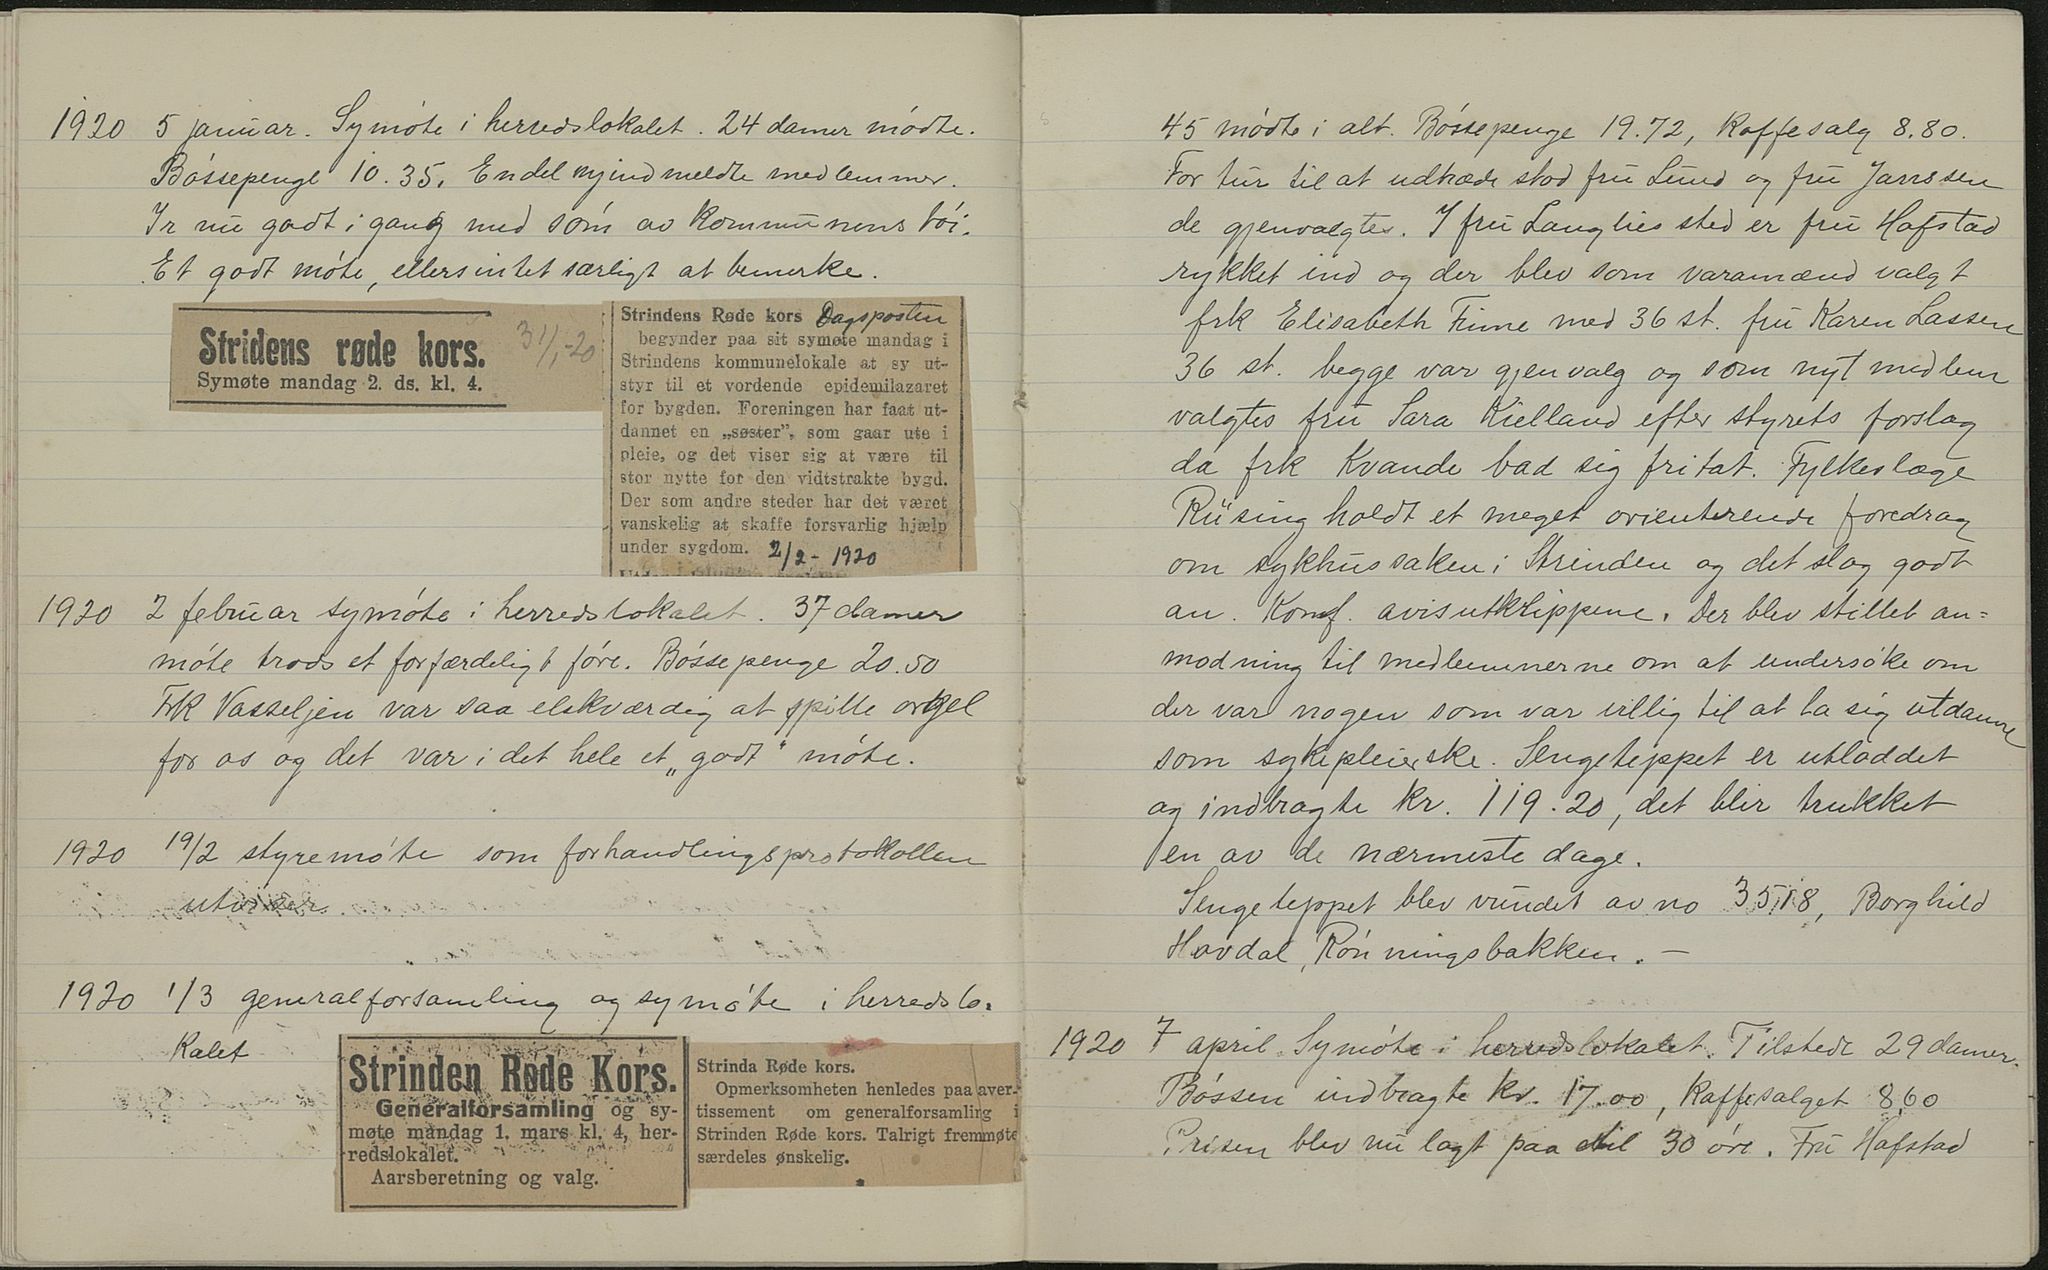 1920 5 januar. Symøte i herredslokalet. 24 damer mødte.
Bøssepenge 10.35. Endel nyindmeldte medlemmer.
Er nu godt i gang med søm av kommunens tøi.
Et godt møte, ellers intet særligt at bemerke.
Stridens røde kors.
Symøte mandag 2. ds. kl. 4.
31/1-20
Strindens Røde kors Dagsposten
begynder paa sit symøte mandag i
Strindens kommunelokale at sy ut-
styr til et vordende epidemilazaret
for bygden. Foreningen har faat ut-
dannet en „søster”, som gaar ute i
pleie, og det viser sig at være til
stor nytte for den vidtstrakte bygd.
Der som andre steder har det været
vanskelig at skaffe forsvarlig hjælp
under sygdom. 2/2-1920
1920 2 februar symøte i herredslokalet. 37 damer
møte trods et forfærdeligt føre. Bøssepenge 20.50
Frk Vasseljen var saa elskværdig at spille orgel
for os og det var i det hele et „godt“ møte.
1920 19/2 styremøte som forhandlingsprotokollen
utviser.
1920 1/3 generalforsamling og symøte i herredslo=
kalet
Strinden Røde Kors.
Generalforsamling og sy-
møte mandag 1. mars kl. 4, her-
redslokalet.
Aarsberetning og valg.
Strinda Røde kors.
Opmerksomheten henledes paa aver-
tissement om generalforsamling i
Strinden Røde kors. Talrigt fremmøte
særdeles ønskelig.
45 mødte i alt. Bøssepenge 19.72, Kaffesalg 8.80.
For tur til at udtræde stod fru Lund og fru Janssen
de gjenvalgtes. I fru Langlies sted er fru Hafstad
rykket ind og der blev som varamænd valgt
frk Elisabeth Finne med 36 st. fru Karen Lassen
36 st. begge var gjenvalg og som nyt medlem
valgtes fru Sara Kielland efter styrets forslag
da frk Kvande bad sig fritat. Fylkeslæge
Rüsing holdt et meget orienterende foredrag
om sykhussaken i Strinden og det slog godt
an. Konf. avisutklippene. Der blev stillet an=
modning til medlemmerne om at undersøke om
der var nogen som var villig til at ta sig utdanne
som sykepleierske. Sengeteppet er utloddet
og indbragte kr. 119.20, det blir trukket
en av de nærmeste dage.
Sengeteppet blev vundet av no 3518, Borghild
Hovdal, Rønningsbakken. —
1920 7 april Symøte i herredslokalet. Tilstede 29 damer.
Bøssen indbragte kr. 17.00, Kaffesalget 8,60
Prisen blev nu lagt paa til 30 øre. Fru Hafstad